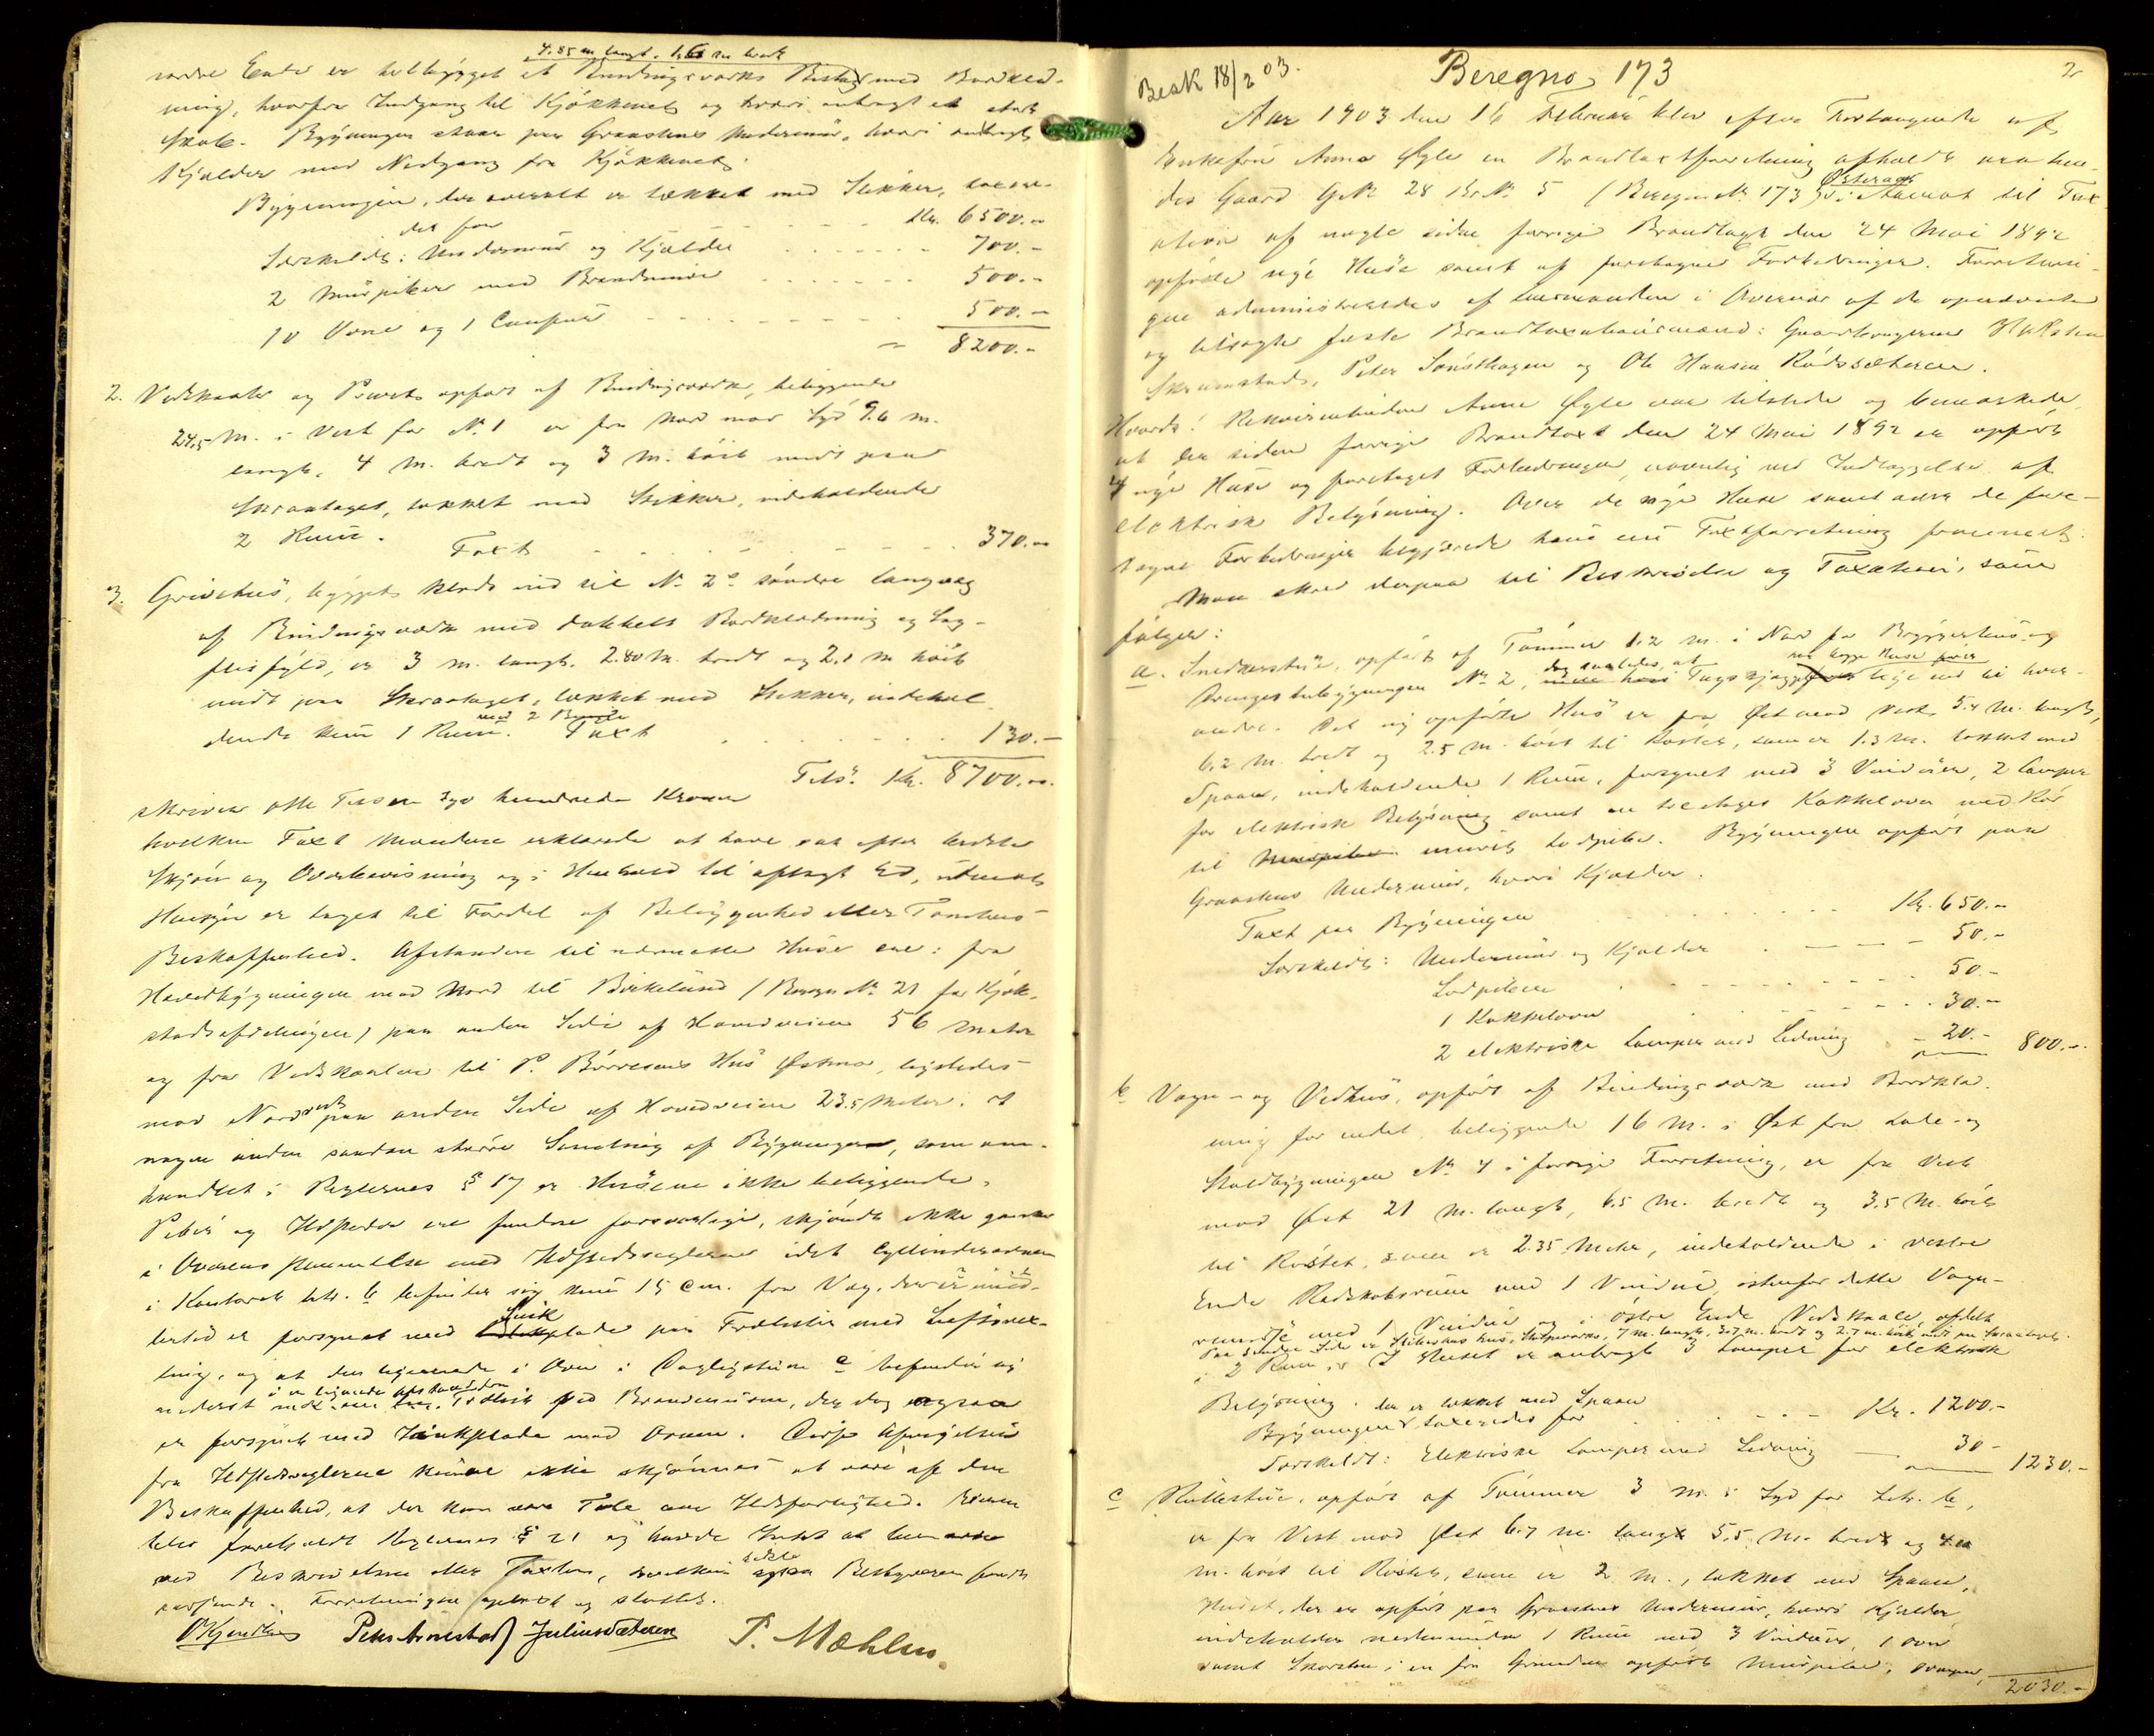 4.85 m langt. 1.6 m bredt
søndre Ende er tilbygget et Bindingsværks Bislag med Bordklæd-
ning, hvorfra Indgang til Kjøkkenet og hvori anbragt et stort
Skab. Bygningen staar paa Graastens Undermur, hvori anbragt
Kjælder med Nedgang fra Kjøkkenet.
Bygningen, der overalt er tækket med Stikker, taxere-
des for Kr. 6500.-
Særskildt: Undermur og Kjælder 700.-
2 Murpiber med Brandmure 500.-
10 Ovne og 1 Comfur 500.-
8200.-
2. Vedskaale og Privet opført af Bindingsværk, beliggende
24,5 M. i Vest for No. 1 er fra Nord mod Syd 9.6 m.
langt, 4 M. bredt og 3 M. høit midt paa
Skraataget, tækket med Stikker, indeholdende
2 Rum. Taxt 370.-
3. Grisehus, bygget klods ind til No. 2s søndre Langvæg
af Bindingsværk med dobbelt Bordklædning og Sag-
flisfyld, er 3 m. langt. 2.80 M. bredt og 2,1 M høit
midt paa Skraataget, tækket med Stikker, indehol-
dende kun 1 Rum. med 2 Binger Taxt 130.-
Tils. Kr. 8700.-
skriver otte Tusen syv hundrede Kroner
hvilken Taxt Mændene erklærede at have sat efter bedste
Skjøn og Overbevisning og i Henhold til aflagt Ed, uden at
Hensyn er taget til Fordel af Beliggenhed eller Tomtens
Beskaffenhed. Afstanden til nærmeste Huse er: fra
Hovedbygningen mod Nord til Birkelund (Beregn No. 21 for Kjøb-
stadsafdelingen) paa anden Side af Hovedveien 56 Meter
og fra Vedskaalen til P. Børresens Hus Østmo, ligeledes
mod Nordvest paa anden Side af Hovedveien 23.5 Meter. I
nogen anden saadan større Samling af Bygninger, som om-
handlet i Reglernes § 17 er Husene ikke beliggende.
Piber og Ildsteder er fundne forsvarlige, skjøndt ikke ganske
i Overensstemmelse med Ildstedsreglerne idet Cylinderovnen
i Kontoret litr. b befinder sig kun 15 cm. fra Væg, der imid-
lertid er forsynet med Zinkplade paa Trælister med Luftvex-
ling, og at den liggende i Ovn i Dagligstuen c befinder sig
nederst i en lignende Afstand fra Trælist ved Brandmuren, der dog ogsaa
er forsynet med Zinkplade mod Ovnen. Disse Afvigelser
fra Ildstedsreglerne kunne ikke skjønnes at være af den
Beskaffenhed, at der kan være Tale om Ildsfarlighed. Eieren
blev foreholdt Reglernes § 21 og havde Intet at bemærke
ved Beskrivelsen eller Taxten, hvilken sidste Bestyreren fandt
passende. Forretningen oplæst og sluttet.
OKjendlie Peter Arnestad Julius Sæteren P. Mæhlum.
Besk 18/2 03. Beregno. 173 2
Aar 1903 den 16 Februar blev efter Forlangende af
Enkefru Anna Øgle en Brandtaxtforretning afholdt paa hen-
des Gaard GNo 28 BrNo 5 (Beregn No. 173 for Østeraas) til Tax-
ation af nogle siden forrige Brandtaxt den 24 Mai 1892
opførte nye Huse samt af foretagne Forbedringer. Forretnin-
gen administreredes af Lensmanden i Overvær af de opnævnte
og tilsagte faste Brandtaxationsmænd: Gaardbrugerne Haksten
Skramstad, Peter Sønsthagen og Ole Hansen Rødssæteren.
Hvorda: Rekvirentinden Anna Øgle var tilstede og bemærkede
at der siden forrige Brandtaxt den 24 Mai 1892 er opført
4 nye Huse og foretaget Forbedringer, navnlig ved Indlæggelse af
elektrisk Belysning. Over de nye Huse samt over de fore-
tagne Forbedringer begjærede hun nu Taxtforretning fremmet.
Man skred derpaa til Beskrivelse og Taxation, som
følger:
a. Snedkerstue, opført af Tømmer 1.2 m. i Nord for Bryggerhus og
Drengestubygningen No. 2, dog saaledes, at Tagskjæg paa begge Huse gaar lige ind til hver-
andre. Det ny opførte Hus er fra Øst mod Vest 5.4 M. langt,
6.2 M. bredt og 2.5 m. høit til Røstet, som er 1.3 M. tækket med
Spaan, indeholdende 1 Rum, forsynet med 3 Vinduer, 2 Lamper
for elektrisk Belysning samt en tre etages Kakkelovn med Rør
til muret Lodpibe. Bygningen opført paa
Graastens Undermur, hvori Kjælder.
Taxt paa Bygningen Kr. 650.-
Særskildt: Undermur og Kjælder 50.-
Lodpiben 50.-
1 Kakkelovn 30.-
2 elektriske Lamper med Ledning 20.- 800.-
b Vogn- og Vedhus, opført af Bindingsværk med Bordklæd-
ning for endel, beliggende 16 M. i Øst fra Lade- og
Staldbygningen No. 4 i forrige Forretning, er fra Vest
mod Øst 21 M. langt, 6.5 M. bredt og 3.5 M. høit
til Røstet, som er 2.35 Meter, indeholdende i vestre
Ende Redskabsrum med 1 Vindue, østenfor dette Vogn-
remisse med 1 Vindue og i østre Ende Vedskaale, afdelt
Paa søndre Side er Skiberhus hus, Skifperværks, 7 M. langt, 3.7 m. bredt og 2.7 m. høit midt paa Skraataget.
i 2 Rum. I Huset er anbragt 3 Lamper for elektrisk
Belysning. der er tækket med Spaan
Bygningen taxeredes for Kr. 1200.-
Særskildt: Elektriske Lamper med Ledning 30 - 1230.-
c Rullestue, opført af Tømmer 3 m. i Syd for Litr. b,
er fra Vest mod Øst 6.7 m. langt 5.5 m. bredt og
m. høit til Røstet, som er 2 m., tækket med Spaan.
Huset, der er opført paa Graastens Undermur, hvori Kjælder
indeholder nedenunder 1 Rum med 3 Vinduer, 1 Ovn
samt Skorsten i en fra Grunden opført Murpibe,
2030.-